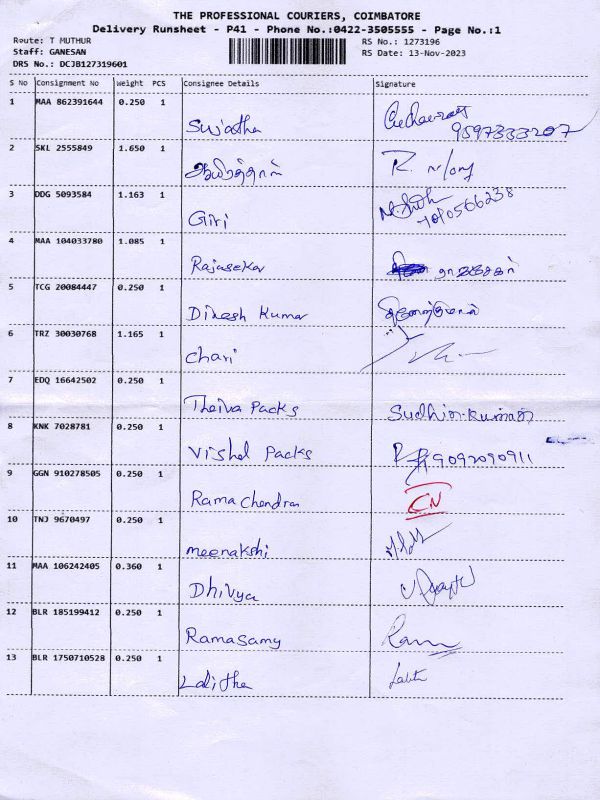 THE PROFESSIONAL COURIERS, COIMBATORE
Delivery Runsheet - P41 - Phone No.:0422-3505555 - Page No.:1
Route: T MUTHUR
RS No.: 1273196
Staff: GANESAN
RS Date: 13-Nov-2023
DRS No.: DCJB127319601
S No Consignment No Weight PCS Consignee Details Signature
1 MAA 862391644 0.250 1
Sujatha
9597333207
2 SKL 2555849 1.650 1
R.
3 DDG 5093584 1.163 1
Giri
7010566238
4 MAA 104033780 1.085 1
Rajasekar ராஜசேகர்
5 TCG 20084447 0.250 1
Dinesh Kumar
6 TRZ 30030768 1.165 1
Chari
7 EDQ 16642502 0.250 1
Theiva Packs Sudhin.kumar
8 KNK 7028781 0.250 1
Vishal Packs 9092090911
9 GGN 910278505 0.250 1
Rama Chendran CN
10 TNJ 9670497 0.250 1
meenakshi
11 MAA 106242405 0.360 1
Dhivya
12 BLR 185199412 0.250 1
Ramasamy Ram
13 BLR 1750710528 0.250 1
Lalitha Lalith